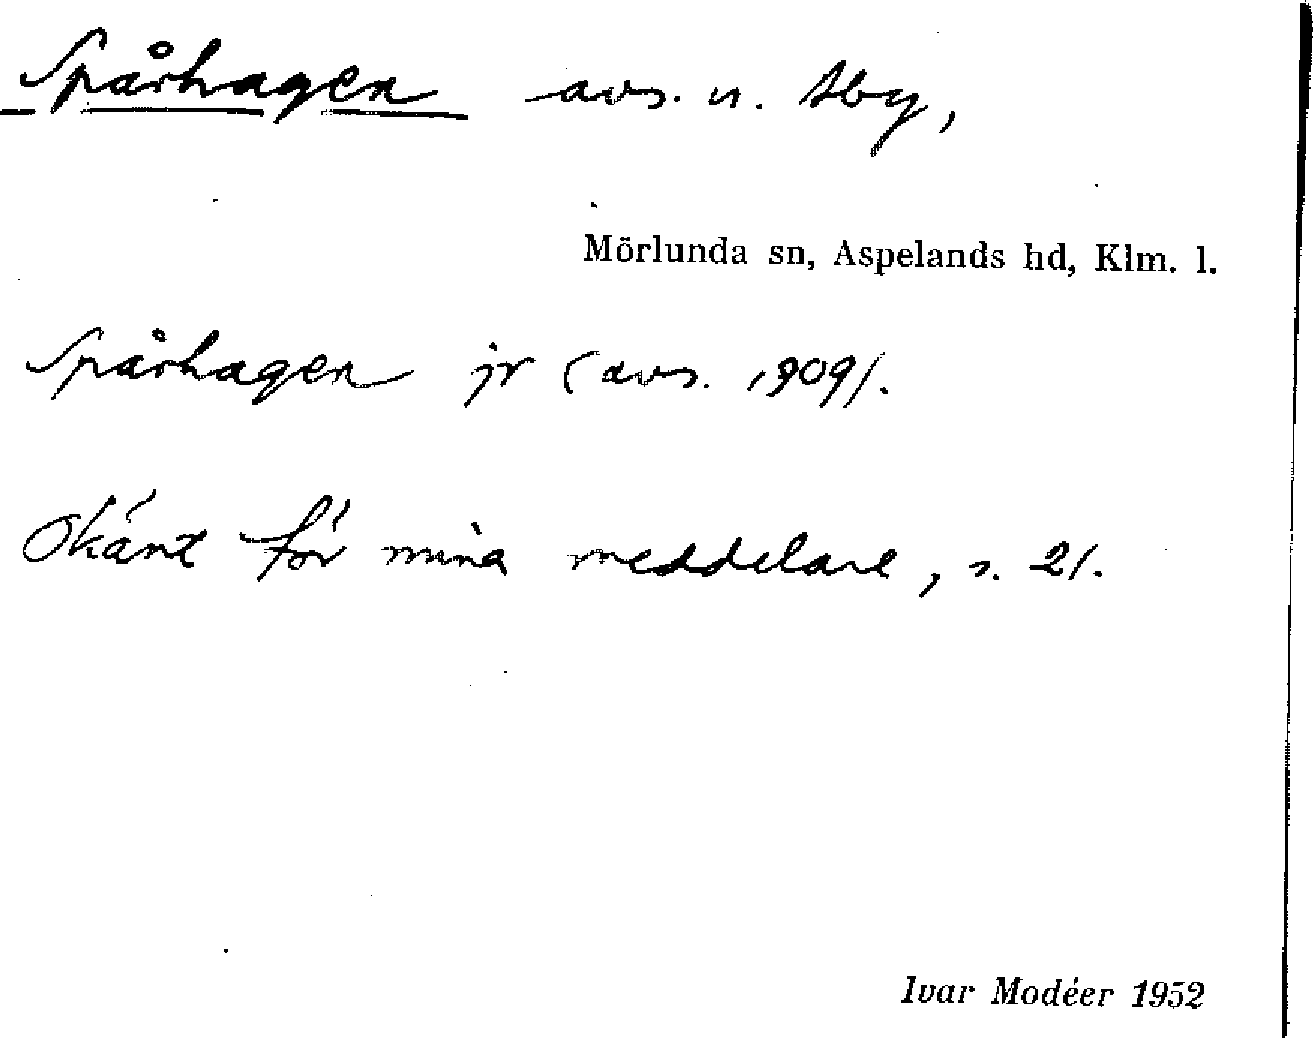 Spårhagen avs. u. Åby,
Mörlunda sn, Aspelands hd, Klm. l.
Spårhagen jr (avs. 1909).
Okänt för mina meddelare, s. 21.
Ivar Modéer 1952